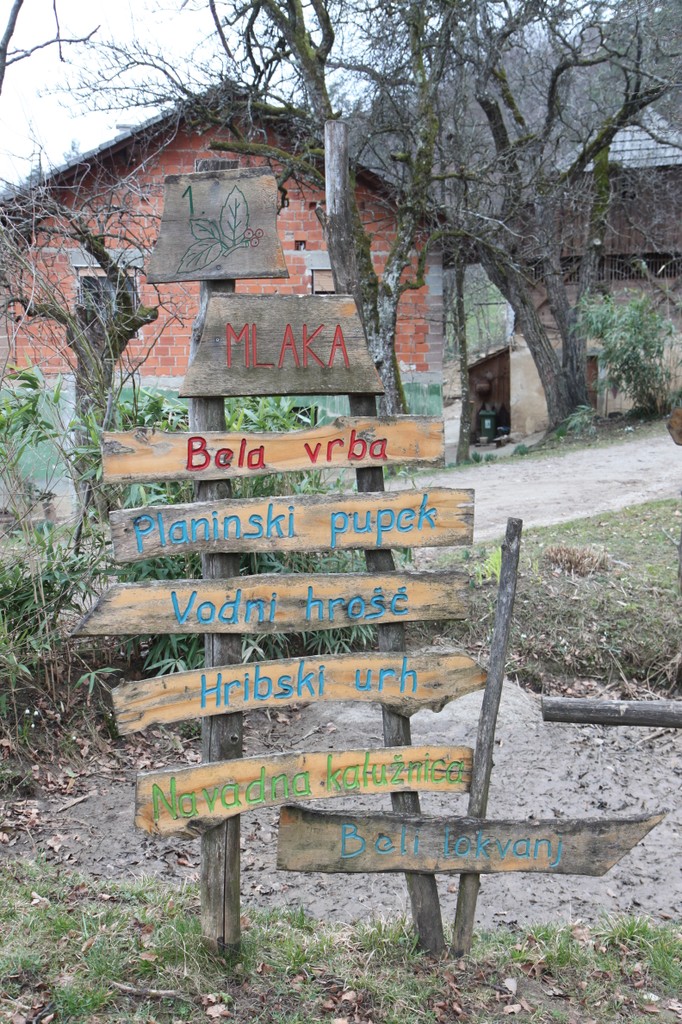 1.
MLAKA
Bela vrba
Planinski pupek
Vodni hrošč
Hribski urh
Navadna kalužnica
Beli lokvanj